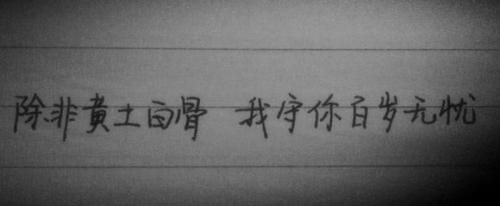 除非黄土白骨 我守你百岁无忧